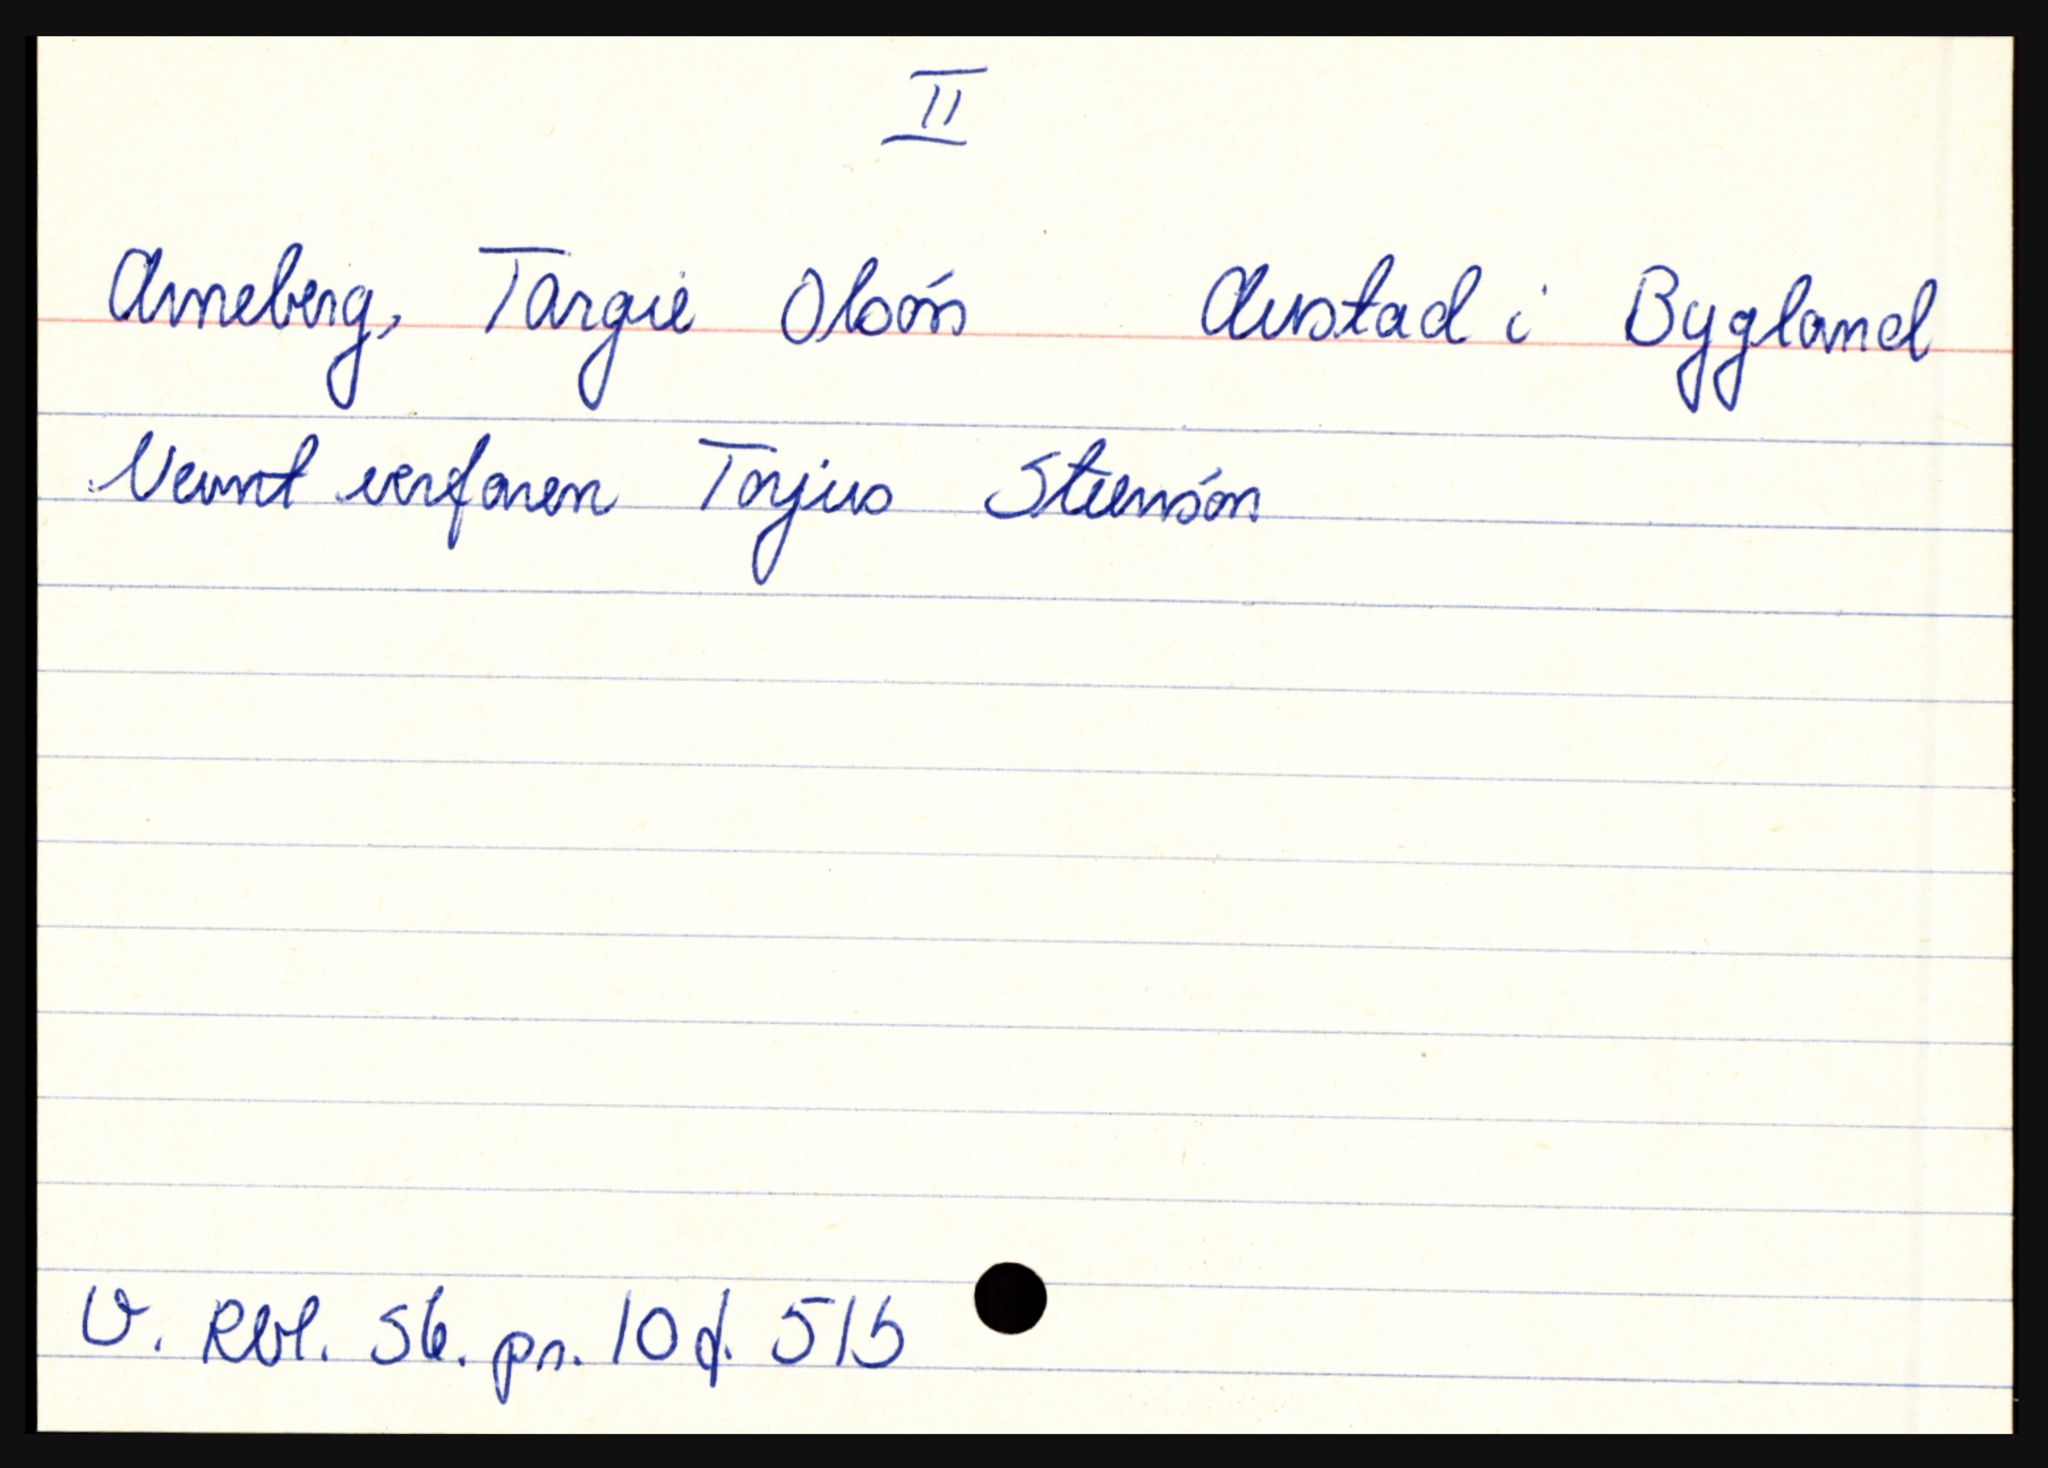 II
Arneberg, Targie Olsøn Austad i Bygland
Nevnt verfaren Torjus Steensøn
V. Rbl. Sb. pn. 10 f. 51b